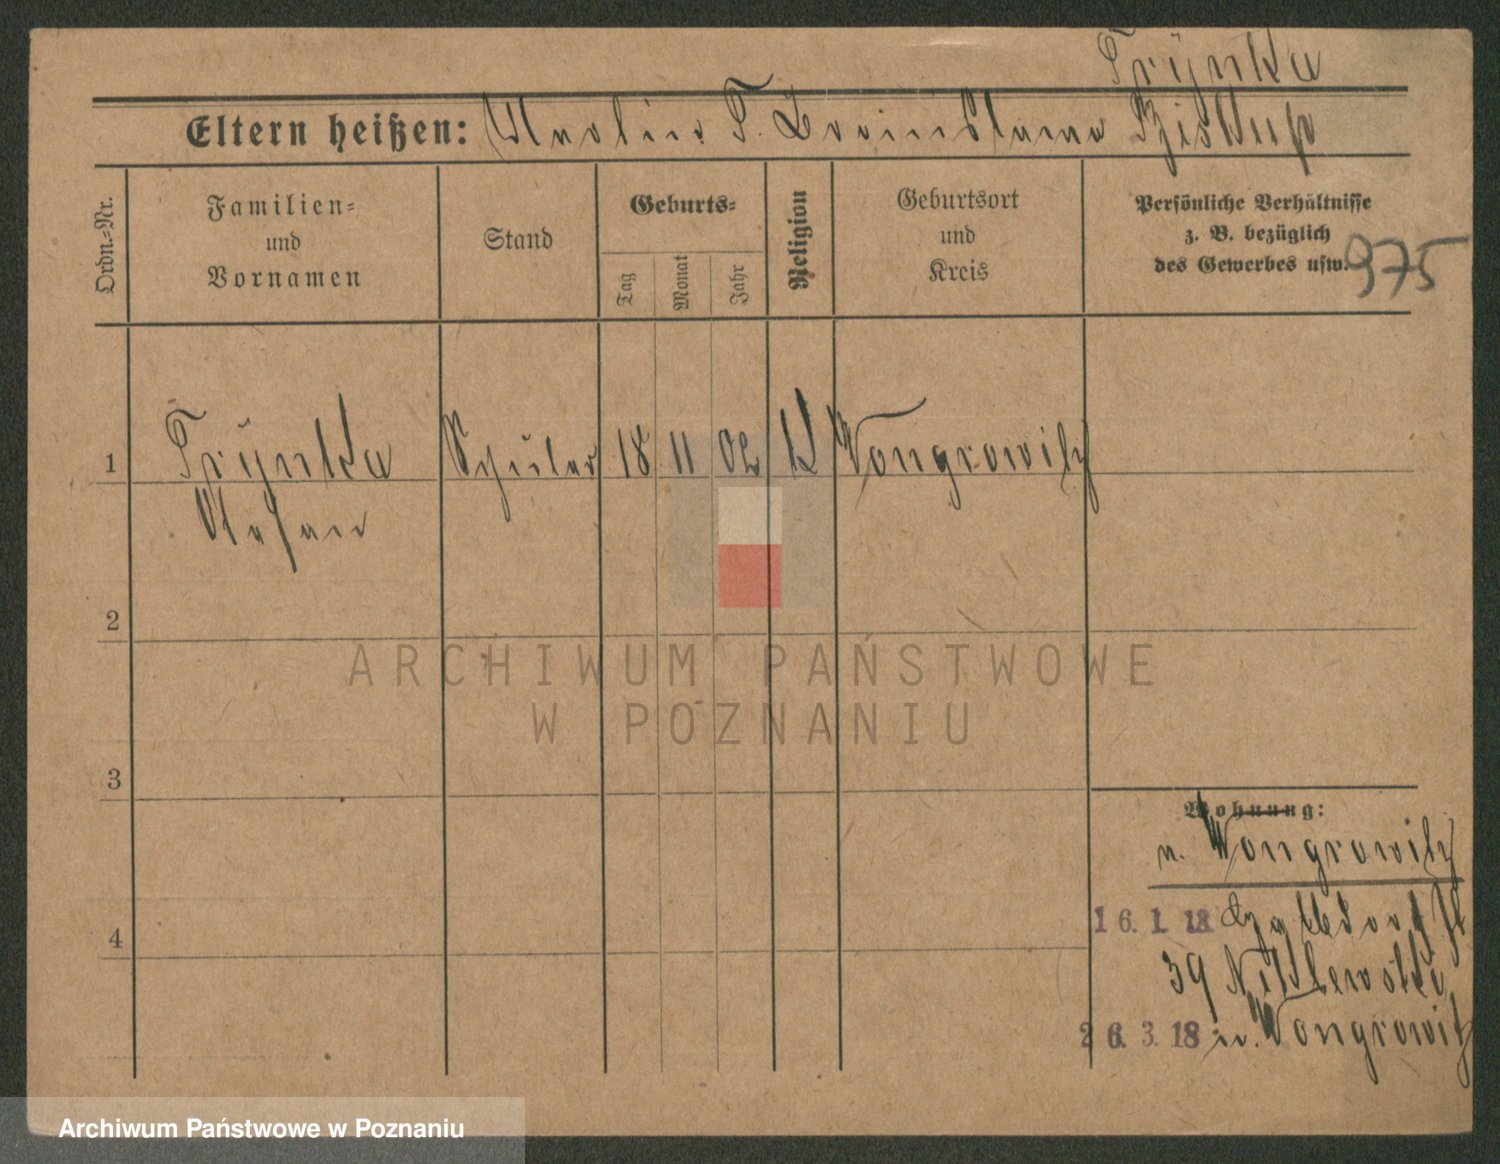 Trÿnka
Eltern heißen: Martin T. Bronislawa Biskup
Ordn.-Nr.
Familien-
und
Vornamen
Stand
Geburts-
Tag
Monat
Jahr
Religion
Geburtsort
und
Kreis
Persönliche Verhältnisse
z. B. bezüglich
des Gewerbes usw.
975
1
Trÿnka Schüler 18 11 02 K Wongrowitz
Stefan
2
3
4
Wohnung:
n. Wongrowitz
16.1.18
39
26.3.18 n. Wongrowitz
ARCHIWUM PAŃSTWOWE
W POZNANIU
Archiwum Państwowe w Poznaniu